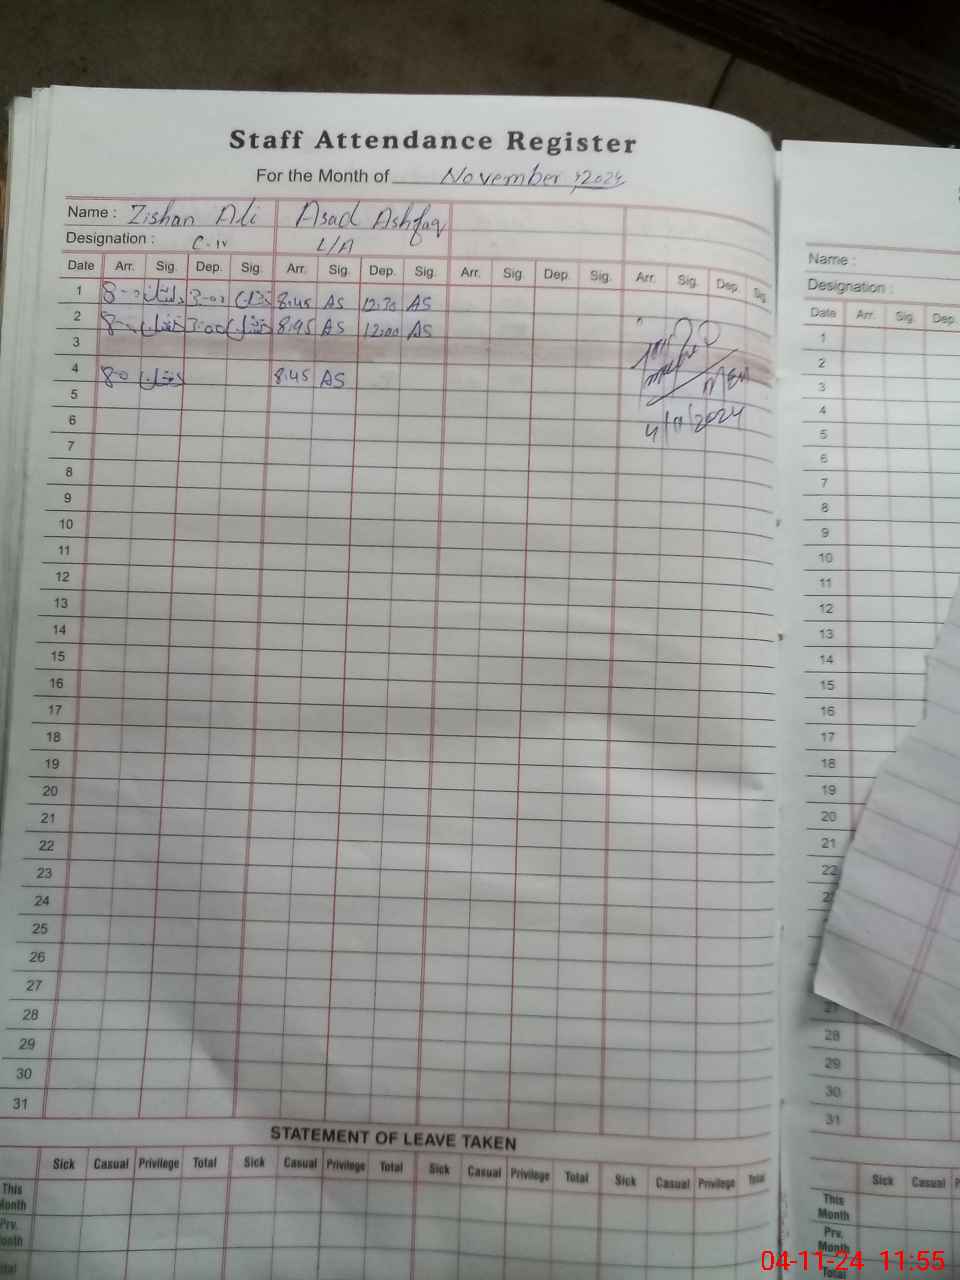 Staff Attendance Register
For the Month of November, 2024
Name : Zishan Ali Asad Ashfaq
Designation : C-IV L/A
Date Arr. Sig. Dep. Sig. Arr. Sig. Dep. Sig. Arr. Sig. Dep. Sig. Arr. Sig. Dep. Sig.
1 8-0 ذیشان 3-00 ذیشان 8.45 AS 12.30 AS
2 8-0 ذیشان 3:00 ذیشان 8.45 AS 12:00 AS
3
4 8-0 ذیشان 8.45 AS
MEA
4/11/2024
5
6
7
8
9
10
11
12
13
14
15
16
17
18
19
20
21
22
23
24
25
26
27
28
29
30
31
STATEMENT OF LEAVE TAKEN
Sick Casual Privilege Total Sick Casual Privilege Total Sick Casual Privilege Total Sick Casual Privilege Total
This
Month
Prv.
Month
Total
Name :
Designation :
Date Arr. Sig. Dep.
1
2
3
4
5
6
7
8
9
10
11
12
13
14
15
16
17
18
19
20
21
22
27
28
29
30
31
Sick Casual
This
Month
Prv.
Month
Total
04-11-24 11:55